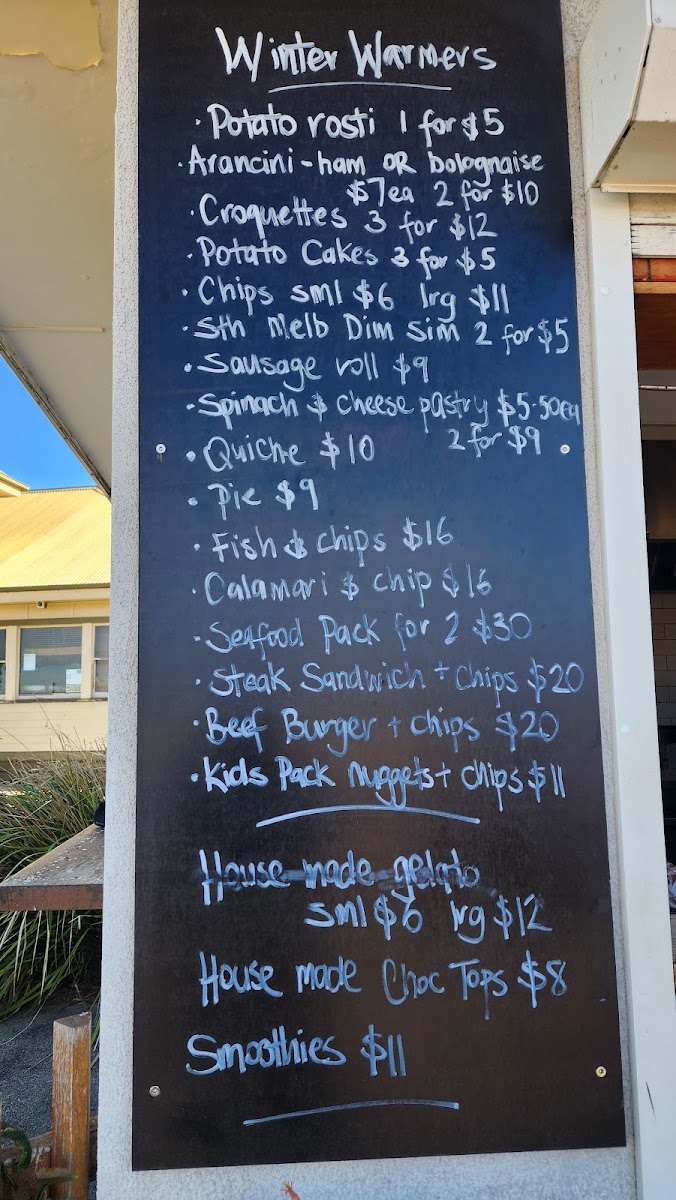 Winter Warmers
· Potato rosti 1 for $5
· Arancini - ham OR bolognaise
$7ea 2 for $10
· Croquettes 3 for $12
· Potato Cakes 3 for $5
· Chips sml $6 lrg $11
· Sth Melb Dim Sim 2 for $5
· Sausage roll $9
· Spinach & cheese pastry $5.50ea
2 for $9
· Quiche $10
· Pie $9
· Fish & chips $16
· Calamari & chip $16
· Seafood Pack for 2 $30
· Steak Sandwich + chips $20
· Beef Burger + chips $20
· Kids Pack nuggets + chips $11
House made gelato
sml $6 lrg $12
House made Choc Tops $8
Smoothies $11